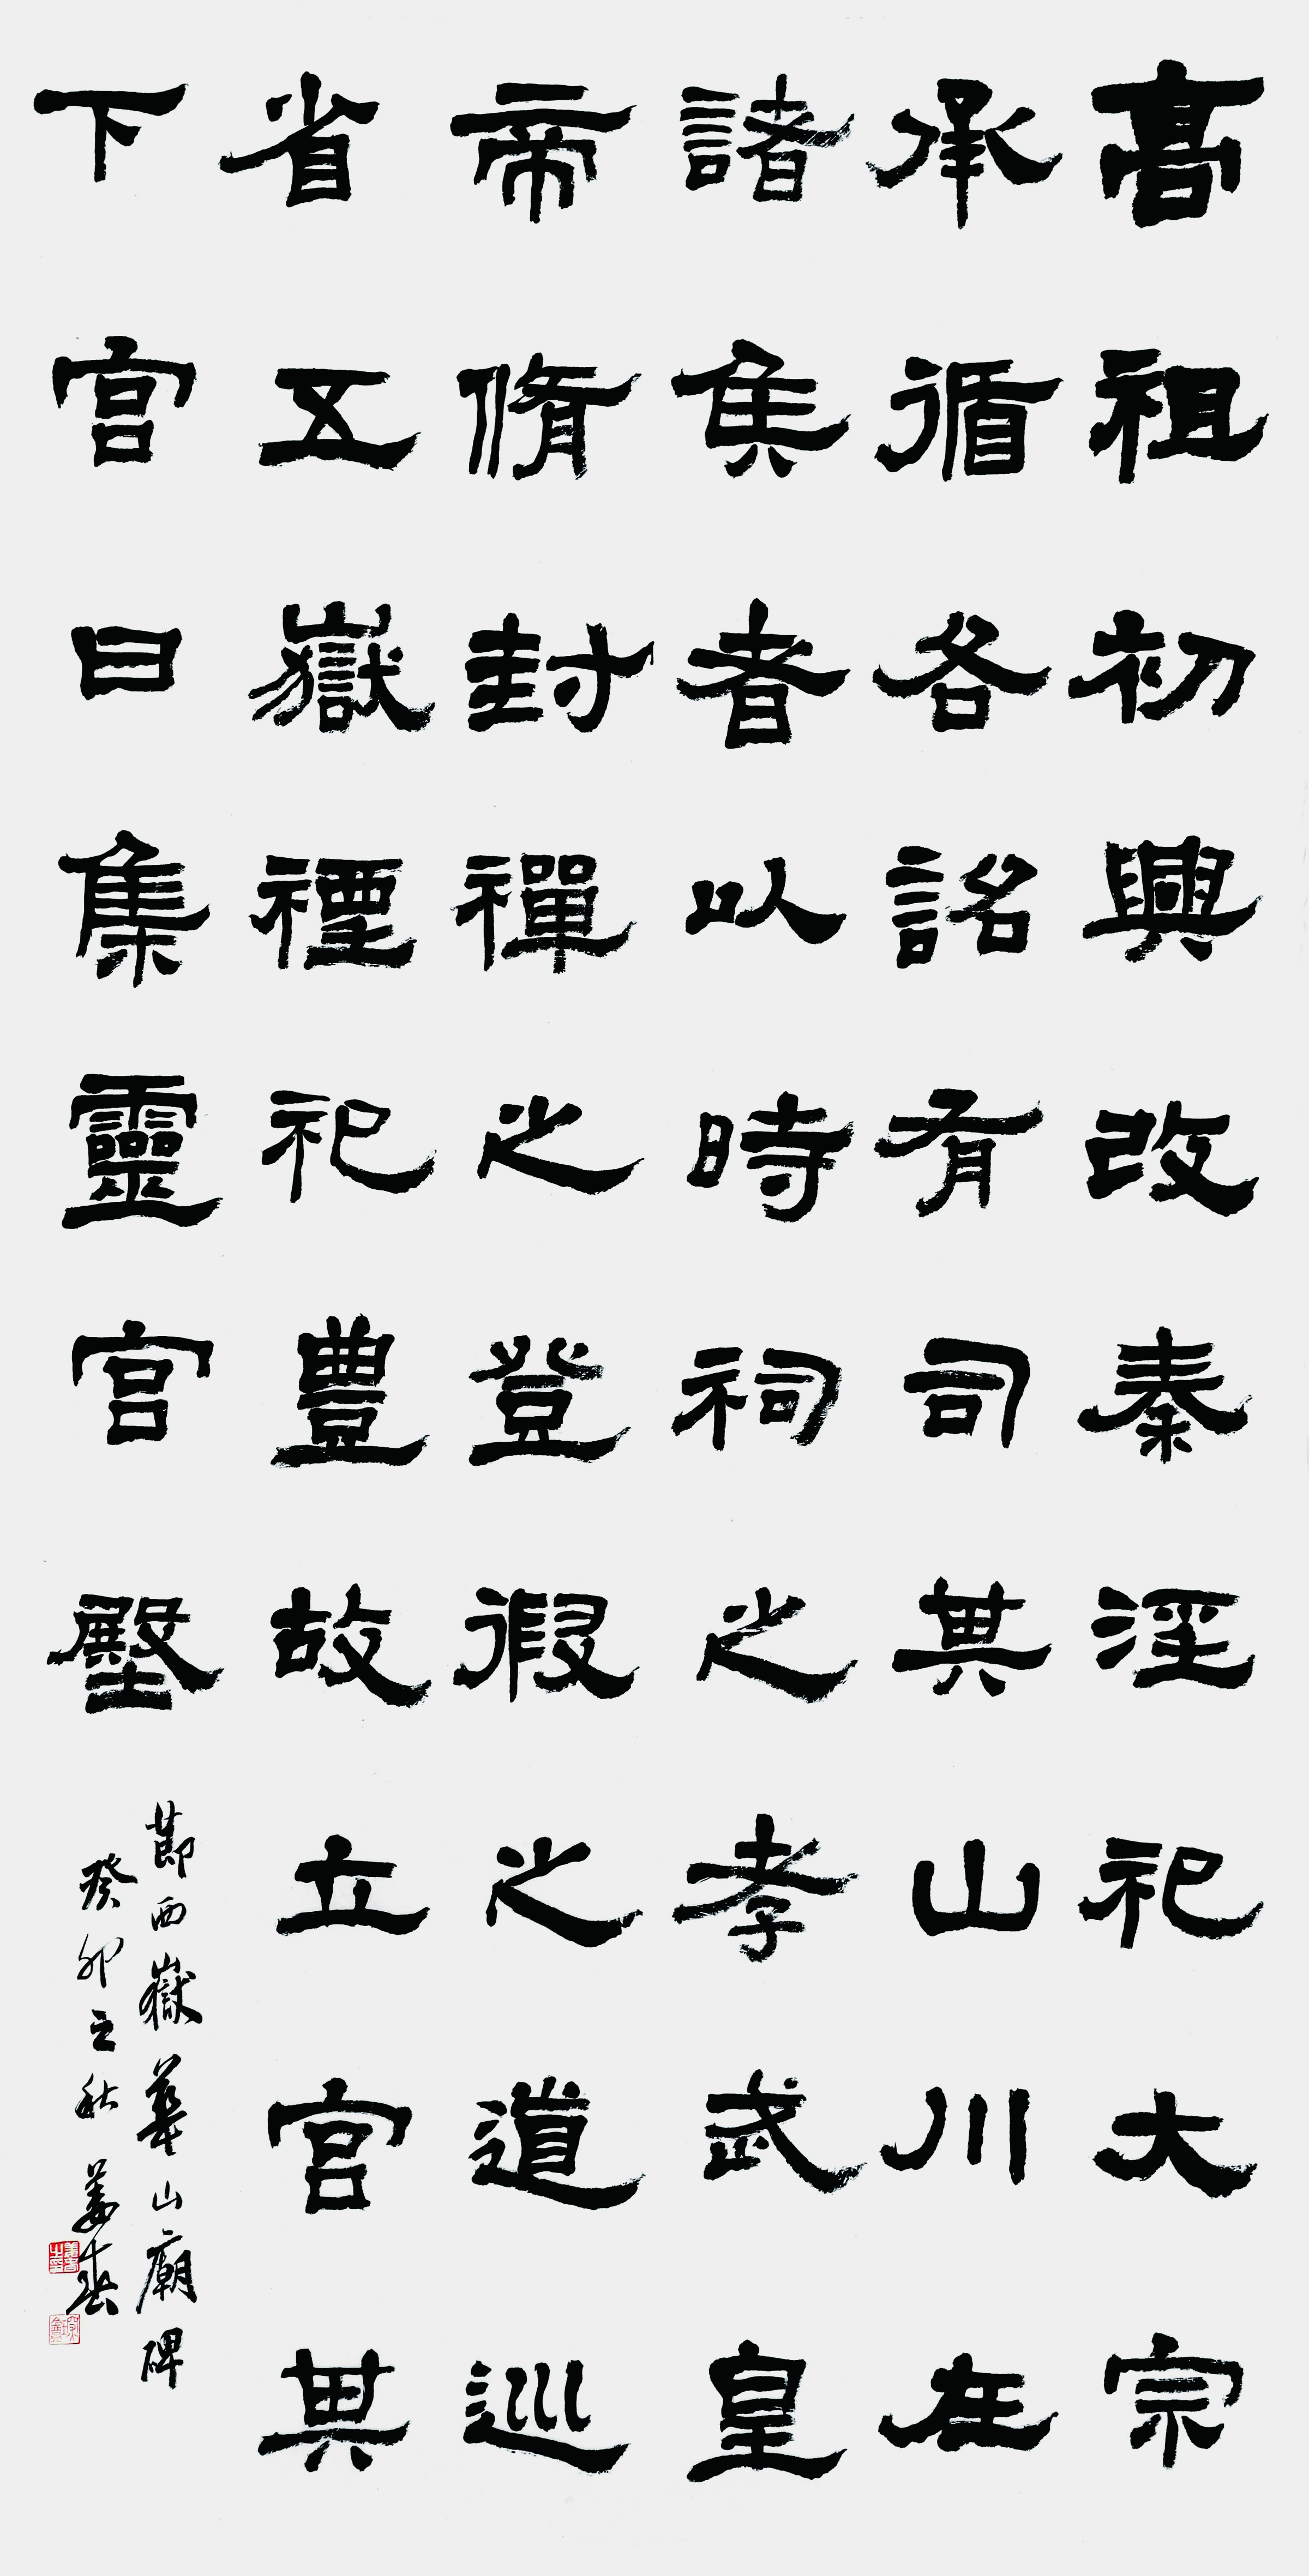 高祖初興改秦淫祀大宗
承循各詔有司其山川在
諸矦者以時祠之孝武皇
帝脩封禪之登徦之道巡
省五嶽禋祀豊故立宮其
下宮曰集靈宮壂
節西嶽華山廟碑
癸卯之秋姜春